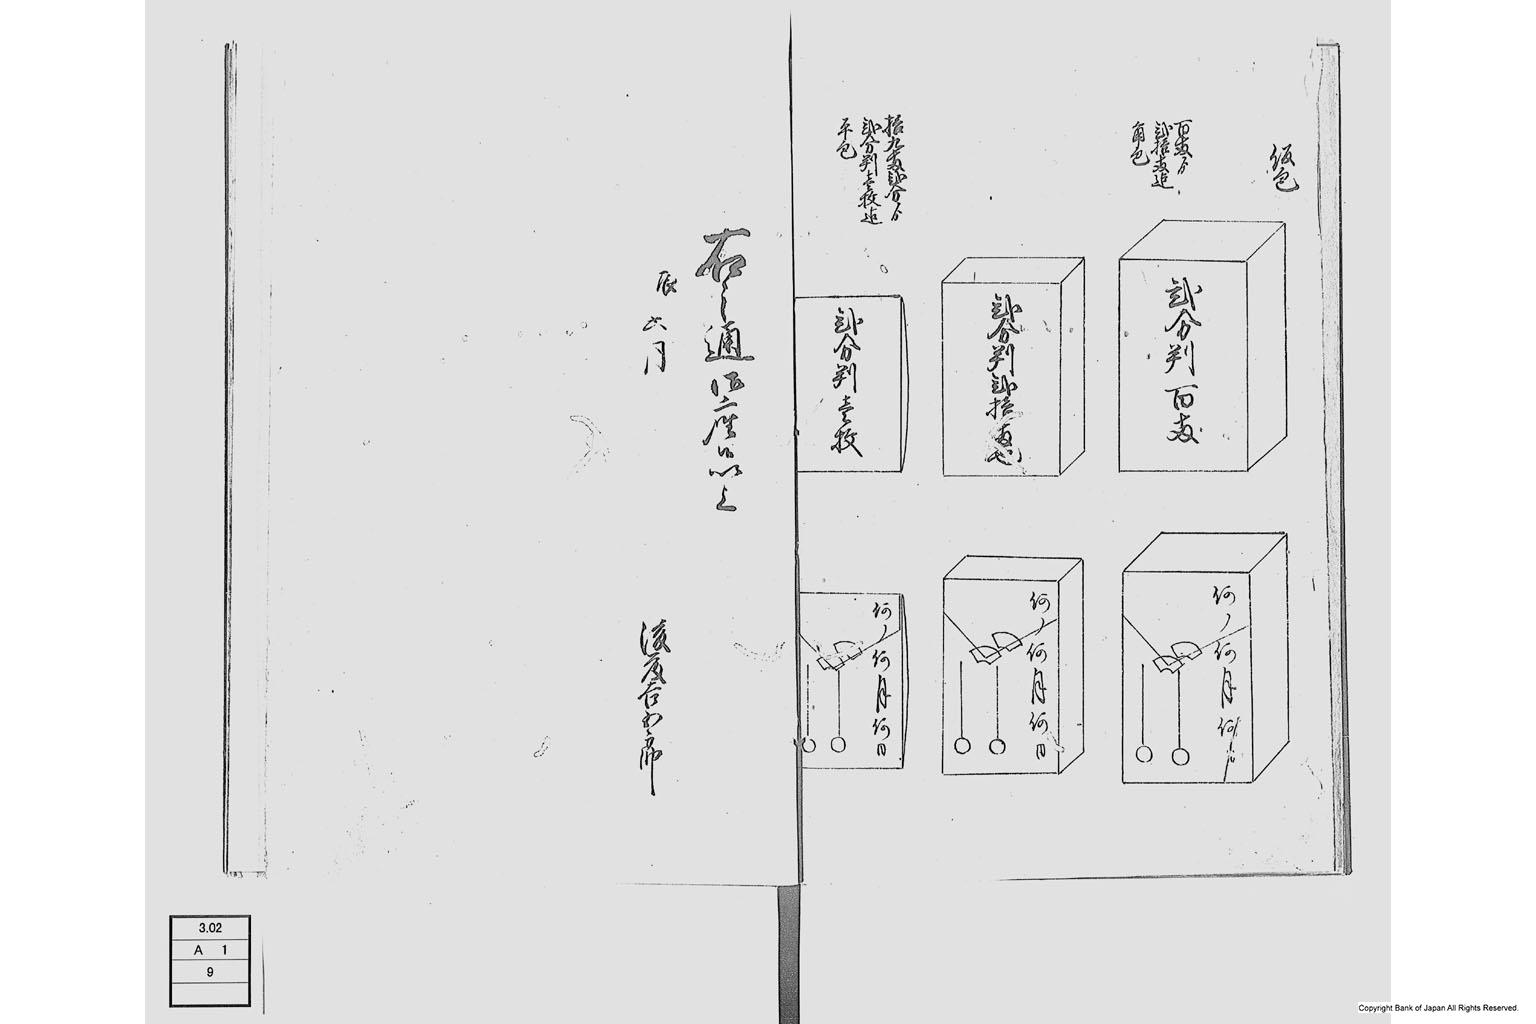 仮包
百両ゟ
弐拾両迄
角包
弐分判百両
弐分判弐拾両
何ノ何月何日
何ノ何月何日
拾九両弐分ゟ
弐分判壱枚迄
平包
弐分判壱枚
何ノ何月何日
右之通御座候以上
辰六月
後藤吉五郎
3.02
A 1
9
Copyright Bank of Japan All Rights Reserved.